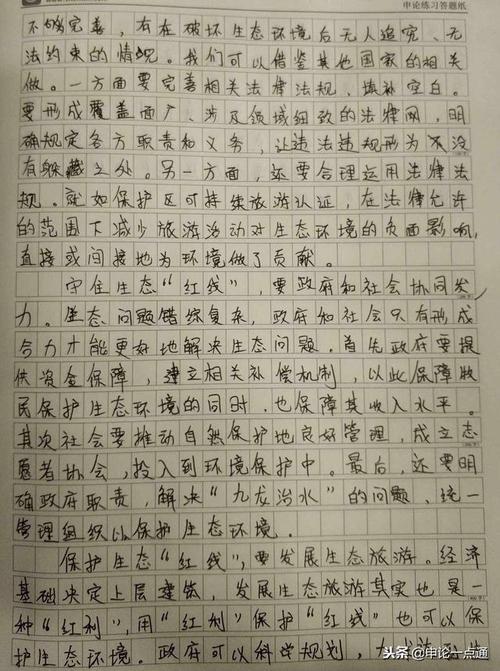 申论练习答题纸
不够完善，存在破坏生态环境后无人追究、无
法约束的情况。我们可以借鉴其他国家的相关
做。一方面要完善相关法律法规，填补空白。
要形成覆盖面广、涉及领域细致的法律网，明
确规定各方职责和义务，让违法违规形为不没
有躲藏之处。另一方面，还要合理运用法律法
规。就如保护区可持续旅游认证，在法律允许
的范围下减少旅游活动对生态环境的负面影响，
直接或间接地为环境做了贡献。
守住生态“红线”，要政府和社会协同发
力。生态问题错综复杂，政府和社会只有形成
合力才能更好地解决生态问题。首先政府要提
供资金保障，建立相关补偿机制，以此保障牧
民保护生态环境的同时，也保障其收入水平。
其次社会要推动自然保护地良好管理，成立志
愿者协会，投入到环境保护中。最后，还要明
确政府职责，解决“九龙治水”的问题，统一
管理组织以保护生态环境。
保护生态“红线”，要发展生态旅游。经济
基础决定上层建筑，发展生态旅游其实也是一
种“红利”，用“红利”保护“红线”也可以保
护生态环境。政府可以科学规划，
头条@申论一点通